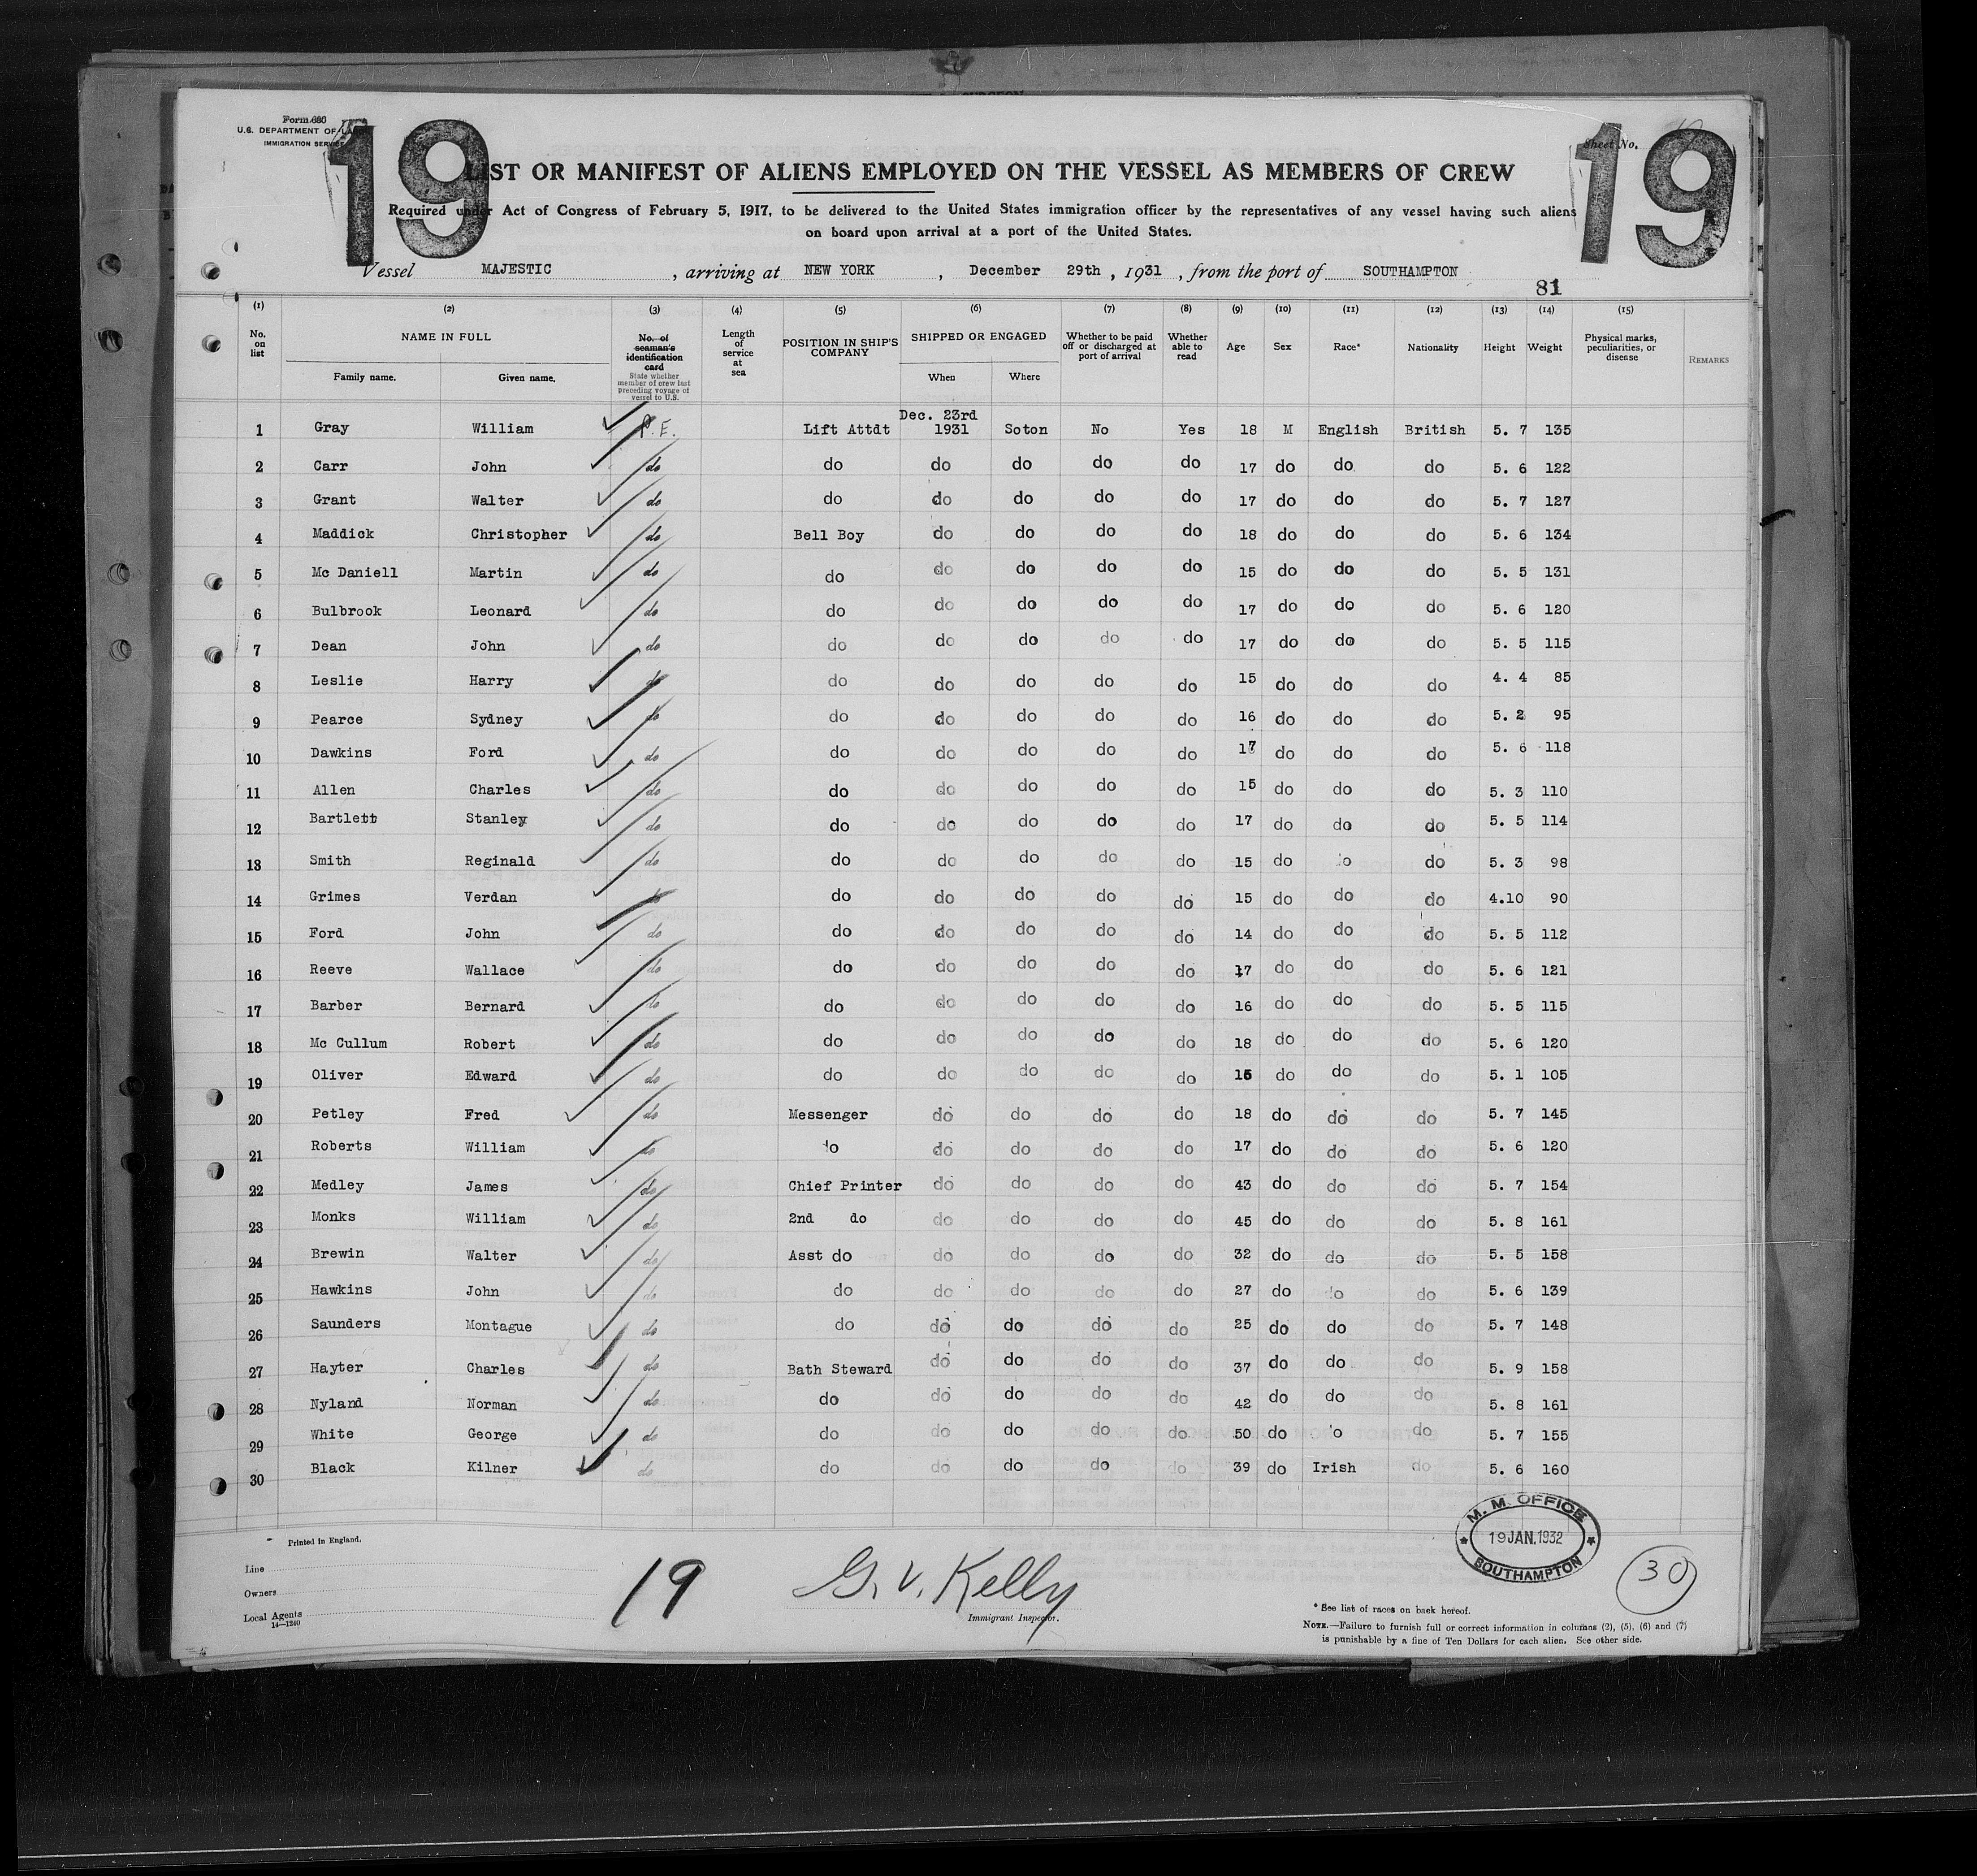 Form 680
U.S. DEPARTMENT OF
IMMIGRATION SERVICE
19
Sheet No.
19
LIST OR MANIFEST OF ALIENS EMPLOYED ON THE VESSEL AS MEMBERS OF CREW
Required under Act of Congress of February 5, 1917, to be delivered to the United States immigration officer by the representatives of any vessel having such aliens
on board upon arrival at a port of the United States.
Vessel MAJESTIC, arriving at NEW YORK, December 29th, 1931, from the port of SOUTHAMPTON
81
(1) (2) (3) (4) (5) (6) (7) (8) (9) (10) (11) (12) (13) (14) (15)
No. on list
NAME IN FULL
Family name. Given name.
No. of seaman's identification card
State whether member of crew last preceding voyage of vessel to U.S.
Length of service at sea
POSITION IN SHIP'S COMPANY
SHIPPED OR ENGAGED
When Where
Whether to be paid off or discharged at port of arrival
Whether able to read
Age Sex Race* Nationality Height Weight
Physical marks, peculiarities, or disease
REMARKS
1 Gray William P.E. Lift Attdt Dec. 23rd 1931 Soton No Yes 18 M English British 5. 7 135
2 Carr John do do do do do do 17 do do do 5. 6 122
3 Grant Walter do do do do do do 17 do do do 5. 7 127
4 Maddick Christopher do Bell Boy do do do do 18 do do do 5. 6 134
5 Mc Daniell Martin do do do do do do 15 do do do 5. 5 131
6 Bulbrook Leonard do do do do do do 17 do do do 5. 6 120
7 Dean John do do do do do do 17 do do do 5. 5 115
8 Leslie Harry do do do do do do 15 do do do 4. 4 85
9 Pearce Sydney do do do do do do 16 do do do 5. 2 95
10 Dawkins Ford do do do do do do 17 do do do 5. 6 118
11 Allen Charles do do do do do do 15 do do do 5. 3 110
12 Bartlett Stanley do do do do do do 17 do do do 5. 5 114
13 Smith Reginald do do do do do do 15 do do do 5. 3 98
14 Grimes Verdan do do do do do do 15 do do do 4.10 90
15 Ford John do do do do do do 14 do do do 5. 5 112
16 Reeve Wallace do do do do do do 17 do do do 5. 6 121
17 Barber Bernard do do do do do do 16 do do do 5. 5 115
18 Mc Cullum Robert do do do do do do 18 do do do 5. 6 120
19 Oliver Edward do do do do do do 16 do do do 5. 1 105
20 Petley Fred do Messenger do do do do 18 do do do 5. 7 145
21 Roberts William do do do do do do 17 do do do 5. 6 120
22 Medley James do Chief Printer do do do do 43 do do do 5. 7 154
23 Monks William do 2nd do do do do do 45 do do do 5. 8 161
24 Brewin Walter do Asst do do do do do 32 do do do 5. 5 158
25 Hawkins John do do do do do do 27 do do do 5. 6 139
26 Saunders Montague do do do do do do 25 do do do 5. 7 148
27 Hayter Charles do Bath Steward do do do do 37 do do do 5. 9 158
28 Nyland Norman do do do do do do 42 do do do 5. 8 161
29 White George do do do do do do 50 do do do 5. 7 155
30 Black Kilner do do do do do do 39 do Irish do 5. 6 160
M. M. OFFICE
19 JAN. 1932
SOUTHAMPTON
Printed in England.
Line
Owners
Local Agents
14—1240
19
G. V. Kelly
Immigrant Inspector.
30
* See list of races on back hereof.
NOTE.—Failure to furnish full or correct information in columns (2), (5), (6) and (7)
is punishable by a fine of Ten Dollars for each alien. See other side.